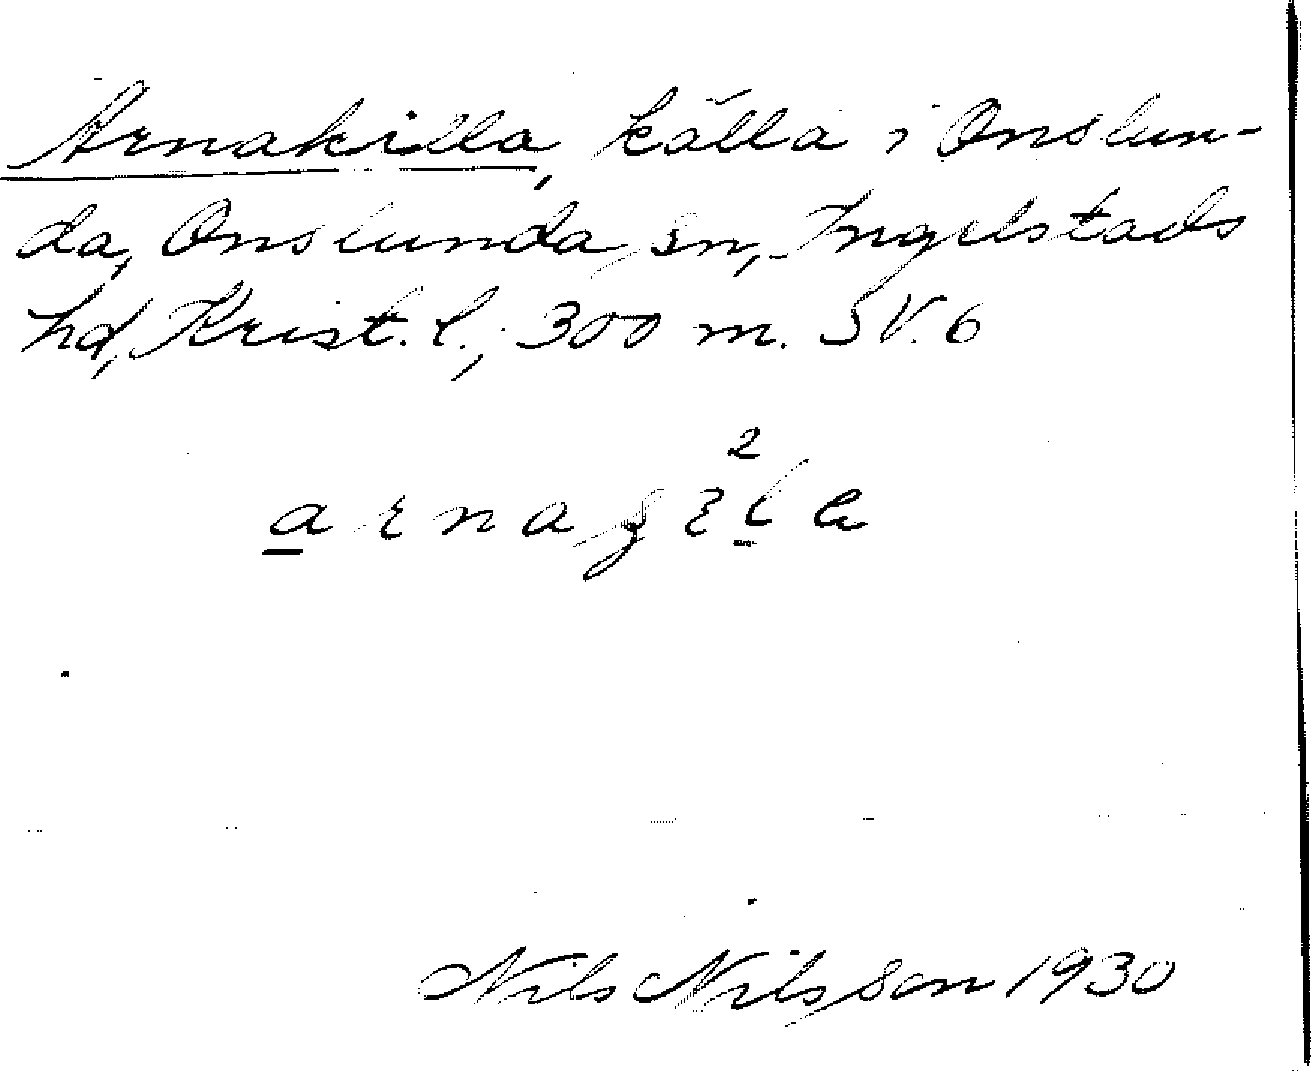 Arnakilla, källa i Onslun-
da, Onslunda sn, Ingelstads
hd, Krist. l.; 300 m. SV. 6
Nils Nilsson 1930